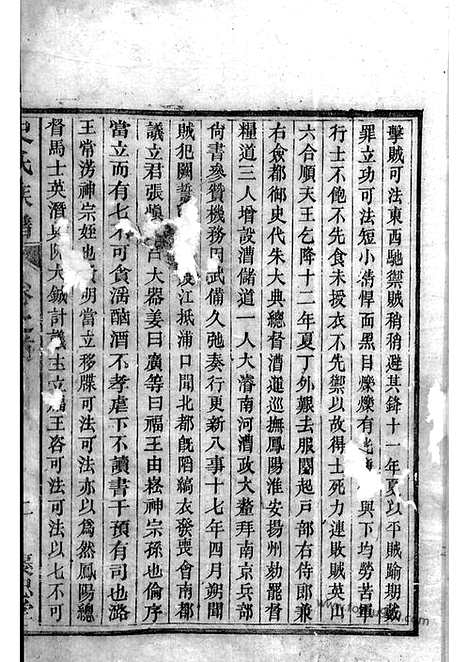 擊賊可法東西馳禦賊稍稍避其鋒十一年夏以平賊踰期戴
罪立功可法短小精悍面黑目爍爍有光 與下均勞苦軍
行士不飽不先食未授衣不先禦以故得士死力連敗賊英山
六合順天王乞降十二年夏丁外艱去服闋起戶部右侍郎兼
右僉都御史代朱大典總督漕運巡撫鳳陽淮安揚州劾罷督
糧道三人增設漕儲道一人大濬南河漕政大釐拜南京兵部
尙書參贊機務因武備久弛奏行更新八事十七年四月朔聞
賊犯闕誓 渡江抵浦口聞北都旣陷縞衣發喪會南都
議立君張愼 呂大器姜曰廣等曰福王由崧神宗孫也倫序
當立而有七不可貪淫酗酒不孝虐下不讀書干預有司也潞
王常淓神宗姪也 明當立移牒可法可法亦以爲然鳳陽總
督馬士英潛與阮大鋮計議主立福王咨可法可法以七不可
史氏族譜